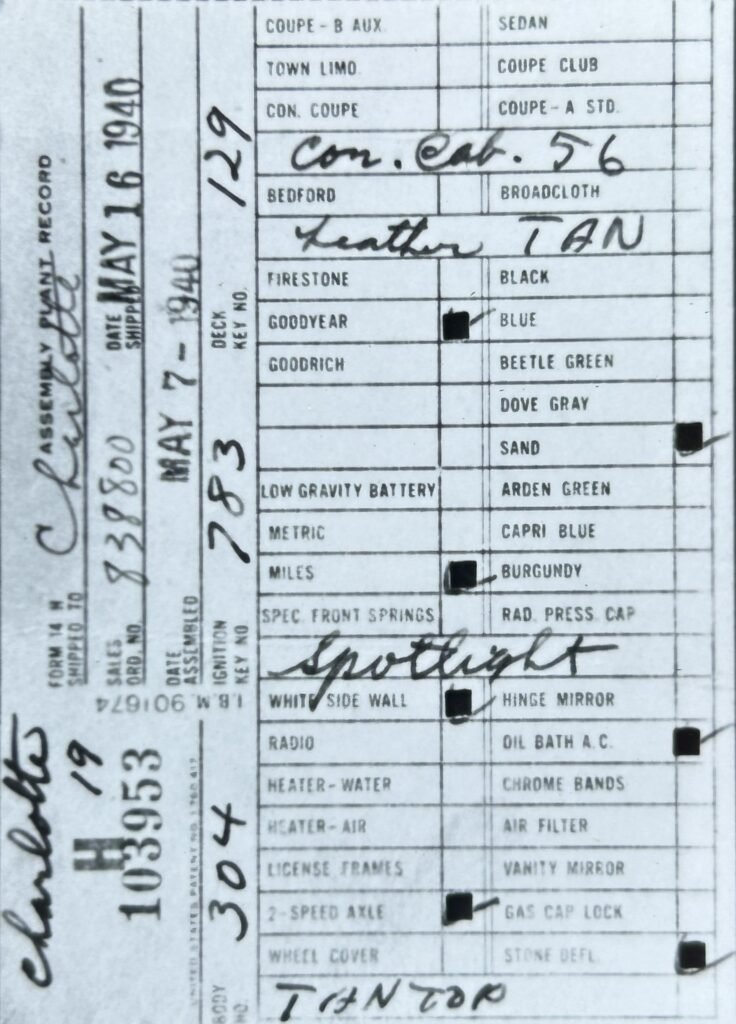 COUPE - B AUX. SEDAN
TOWN LIMO. COUPE CLUB
CON. COUPE COUPE - A STD.
Con. Cab. 56
BEDFORD BROADCLOTH
Leather TAN
FIRESTONE BLACK
GOODYEAR BLUE
GOODRICH BEETLE GREEN
DOVE GRAY
SAND
LOW GRAVITY BATTERY ARDEN GREEN
METRIC CAPRI BLUE
MILES BURGUNDY
SPEC. FRONT SPRINGS RAD. PRESS. CAP
Spotlight
WHITE SIDE WALL HINGE MIRROR
RADIO OIL BATH A.C.
HEATER - WATER CHROME BANDS
HEATER - AIR AIR FILTER
LICENSE FRAMES VANITY MIRROR
2-SPEED AXLE GAS CAP LOCK
WHEEL COVER STONE DEFL.
TAN TOP
ASSEMBLY PLANT RECORD
FORM 14 H
SHIPPED TO Charlotte
SALES ORD. NO. 838800 DATE SHIPPED MAY 16 1940
DATE ASSEMBLED MAY 7 - 1940
IGNITION KEY NO. 783 DECK KEY NO. 129
I.B.M. 901674
Charlotte
19
H
103953
UNITED STATES PATENT NO. 1,780,417
BODY NO. 304